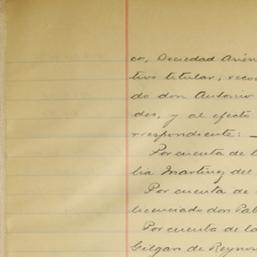 co, Sociedad Anón
tivo titular, reco
do don Antonio
des, y al efecto
rrespondiente: —
Por cuenta de l
lia Martinez del
Por cuenta de
licenciado don Pab
Por cuenta de la
Gilgan de Reynor